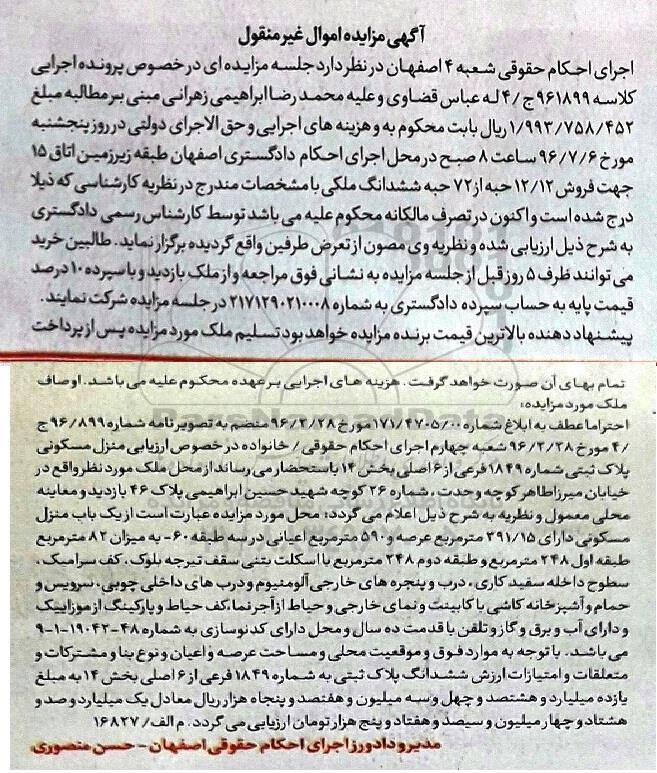 آگهی مزایده اموال غیر منقول
اجرای احکام حقوقی شعبه ۴ اصفهان در نظر دارد جلسه مزایده ای در خصوص پرونده اجرایی
کلاسه ۹۶۱۸۹۹ ج/۴ له عباس قضاوی و علیه محمد رضا ابراهیمی زهرانی مبنی بر مطالبه مبلغ
۱/۹۹۳/۷۵۸/۴۵۲ ریال بابت محکوم به و هزینه های اجرایی و حق الاجرای دولتی در روز پنجشنبه
مورخ ۹۶/۷/۶ ساعت ۸ صبح در محل اجرای احکام دادگستری اصفهان طبقه زیرزمین اتاق ۱۵
جهت فروش ۱۲/۱۲ حبه از ۷۲ حبه ششدانگ ملکی با مشخصات مندرج در نظریه کارشناسی که ذیلا
درج شده است و اکنون در تصرف مالکانه محکوم علیه می باشد توسط کارشناس رسمی دادگستری
به شرح ذیل ارزیابی شده و نظریه وی مصون از تعرض طرفین واقع گردیده برگزار نماید. طالبین خرید
می توانند ظرف ۵ روز قبل از جلسه مزایده به نشانی فوق مراجعه و از ملک بازدید و با سپرده ۱۰ درصد
قیمت پایه به حساب سپرده دادگستری به شماره ۲۱۷۱۲۹۰۲۱۰۰۰۸ در جلسه مزایده شرکت نمایند.
پیشنهاد دهنده بالاترین قیمت برنده مزایده خواهد بود تسلیم ملک مورد مزایده پس از پرداخت
تمام بهای آن صورت خواهد گرفت. هزینه های اجرایی بر عهده محکوم علیه می باشد. اوصاف
ملک مورد مزایده:
احتراما عطف به ابلاغ شماره ۱۷۱/۴۷۰۵/۰۰ مورخ ۹۶/۲/۲۸ منضم به تصویر نامه شماره ۹۶/۸۹۹ ج
/۴ مورخ ۹۶/۲/۲۸ شعبه چهارم اجرای احکام حقوقی / خانواده در خصوص ارزیابی منزل مسکونی
پلاک ثبتی شماره ۱۸۴۹ فرعی از ۶ اصلی بخش ۱۴ باستحضار می رساند از محل ملک مورد نظر واقع در
خیابان میرزاطاهر کوچه وحدت، شماره ۲۶ کوچه شهید حسین ابراهیمی پلاک ۴۶ بازدید و معاینه
محلی معمول و نظریه به شرح ذیل اعلام می گردد: محل مورد مزایده عبارت است از یک باب منزل
مسکونی دارای ۲۹۱/۱۵ مترمربع عرصه و ۵۹۰ مترمربع اعیانی در سه طبقه ۶۰- به میزان ۸۲ مترمربع
طبقه اول ۲۴۸ مترمربع و طبقه دوم ۲۴۸ مترمربع با اسکلت بتنی سقف تیرچه بلوک، کف سرامیک،
سطوح داخله سفید کاری، درب و پنجره های خارجی آلومنیوم و درب های داخلی چوبی، سرویس و
حمام و آشپزخانه کاشی با کابینت و نمای خارجی و حیاط از آجر نما، کف حیاط و پارکینگ از موزاییک
و دارای آب و برق و گاز و تلفن با قدمت ده سال و محل دارای کد نوسازی به شماره ۴۸-۱۹۰۴۳-۱-۹
می باشد. با توجه به موارد فوق و موقعیت محلی و مساحت عرصه و اعیان و نوع بنا و مشترکات و
متعلقات و امتیازات ارزش ششدانگ پلاک ثبتی به شماره ۱۸۴۹ فرعی از ۶ اصلی بخش ۱۴ به مبلغ
یازده میلیارد و هشتصد و چهل و سه میلیون و هفتصد و پنجاه هزار ریال معادل یک میلیارد و صد و
هشتاد و چهار میلیون و سیصد و هفتاد و پنج هزار تومان ارزیابی می گردد. م الف/ ۱۶۸۲۷
مدیر و دادورز اجرای احکام حقوقی اصفهان - حسن منصوری
ParsNamadData